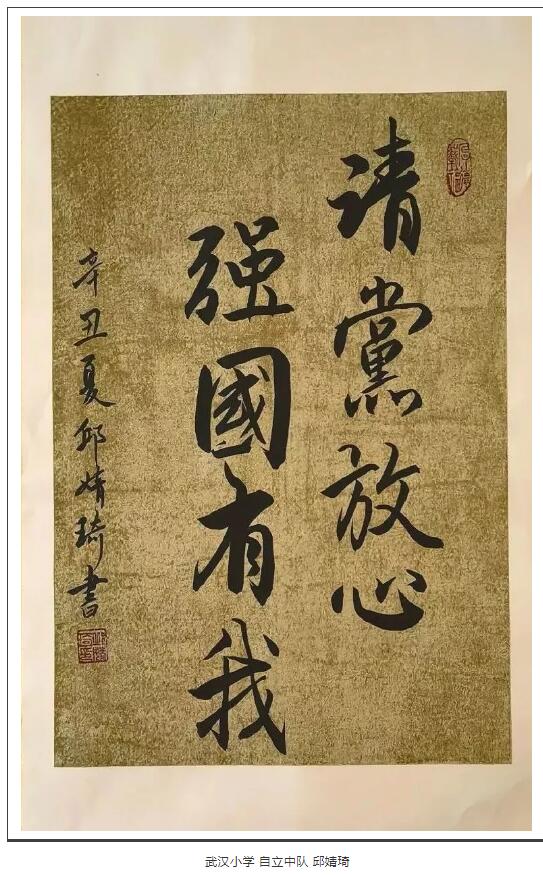 请黨放心
强國有我
辛丑夏邱婧琦書
武汉小学 自立中队 邱婧琦